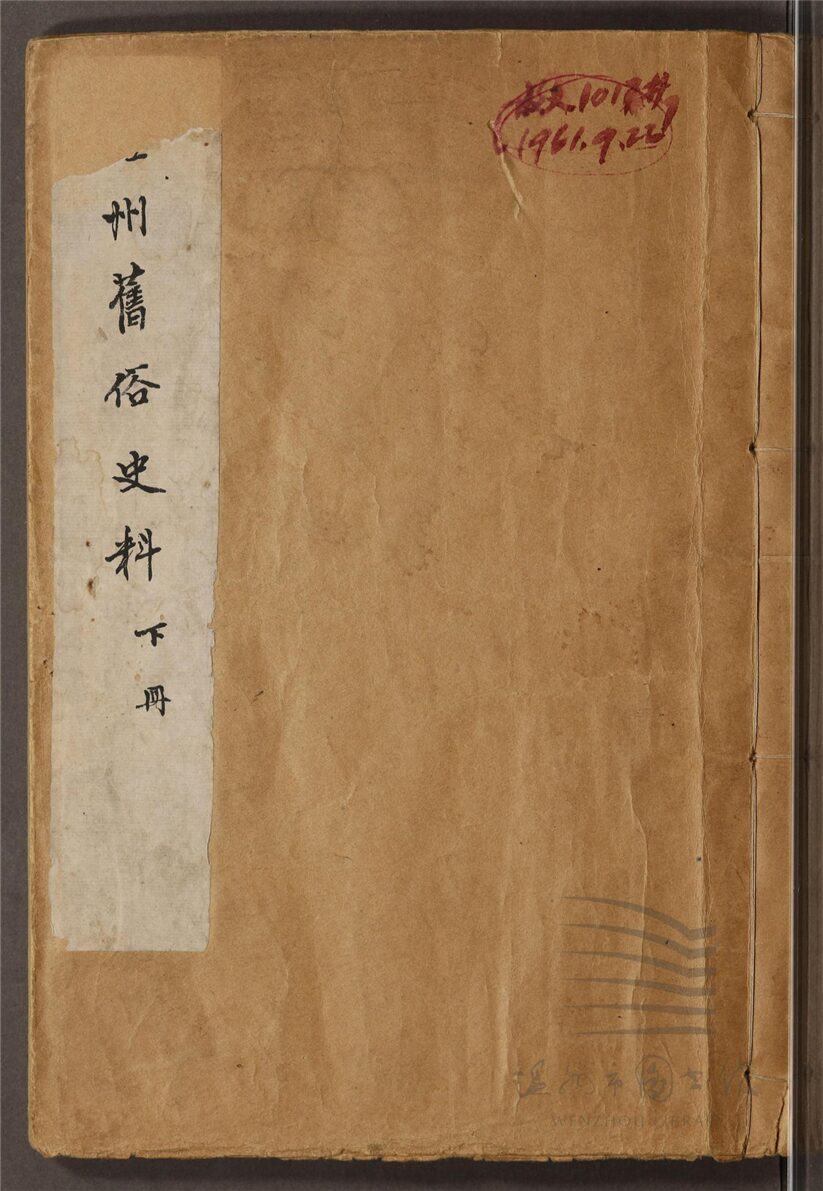 州舊俗史料 下冊
1961.9.22
温州市图书馆
WENZHOU LIBRARY